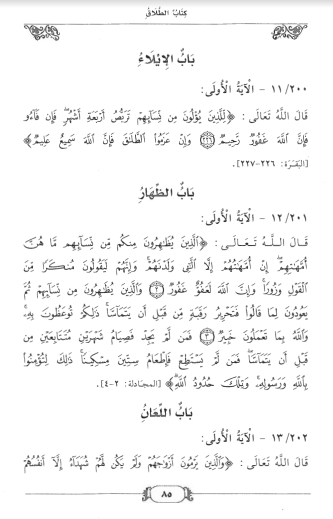 كِتَابُ الطَّلَاقِ
بَابُ الْإِيْلَاءِ
١١/٢٠٠ - الْآيَةُ الْأُولَى:
قَالَ اللَّهُ تَعَالَى: ﴿لِّلَّذِينَ يُؤْلُونَ مِن نِّسَآئِهِمْ تَرَبُّصُ أَرْبَعَةِ أَشْهُرٍ فَإِن فَآءُو
فَإِنَّ ٱللَّهَ غَفُورٌ رَّحِيمٌ ۝٢٢٦ وَإِنْ عَزَمُوا۟ ٱلطَّلَـٰقَ فَإِنَّ ٱللَّهَ سَمِيعٌ عَلِيمٌ﴾
[البَقَرَة: ٢٢٦-٢٢٧].
بَابُ الظِّهَارِ
١٢/٢٠١ - الْآيَةُ الْأُولَى:
قَالَ اللَّهُ تَعَالَى: ﴿ٱلَّذِينَ يُظَـٰهِرُونَ مِنكُم مِّن نِّسَآئِهِم مَّا هُنَّ
أُمَّهَـٰتِهِمْ ۖ إِنْ أُمَّهَـٰتُهُمْ إِلَّا ٱلَّـٰٓـِٔى وَلَدْنَهُمْ ۚ وَإِنَّهُمْ لَيَقُولُونَ مُنكَرًا مِّنَ
ٱلْقَوْلِ وَزُورًا ۚ وَإِنَّ ٱللَّهَ لَعَفُوٌّ غَفُورٌ ۝٢ وَٱلَّذِينَ يُظَـٰهِرُونَ مِن نِّسَآئِهِمْ ثُمَّ
يَعُودُونَ لِمَا قَالُوا۟ فَتَحْرِيرُ رَقَبَةٍ مِّن قَبْلِ أَن يَتَمَآسَّا ۚ ذَٰلِكُمْ تُوعَظُونَ بِهِۦ ۚ
وَٱللَّهُ بِمَا تَعْمَلُونَ خَبِيرٌ ۝٣ فَمَن لَّمْ يَجِدْ فَصِيَامُ شَهْرَيْنِ مُتَتَابِعَيْنِ مِن
قَبْلِ أَن يَتَمَآسَّا ۖ فَمَن لَّمْ يَسْتَطِعْ فَإِطْعَامُ سِتِّينَ مِسْكِينًا ۚ ذَٰلِكَ لِتُؤْمِنُوا۟
بِٱللَّهِ وَرَسُولِهِۦ ۚ وَتِلْكَ حُدُودُ ٱللَّهِ﴾ [المجَادلة: ٢-٤].
بَابُ اللِّعَانِ
١٣/٢٠٢ - الْآيَةُ الْأُولَى:
قَالَ اللَّهُ تَعَالَى: ﴿وَٱلَّذِينَ يَرْمُونَ أَزْوَٰجَهُمْ وَلَمْ يَكُن لَّهُمْ شُهَدَآءُ إِلَّآ أَنفُسُهُمْ
٨٥